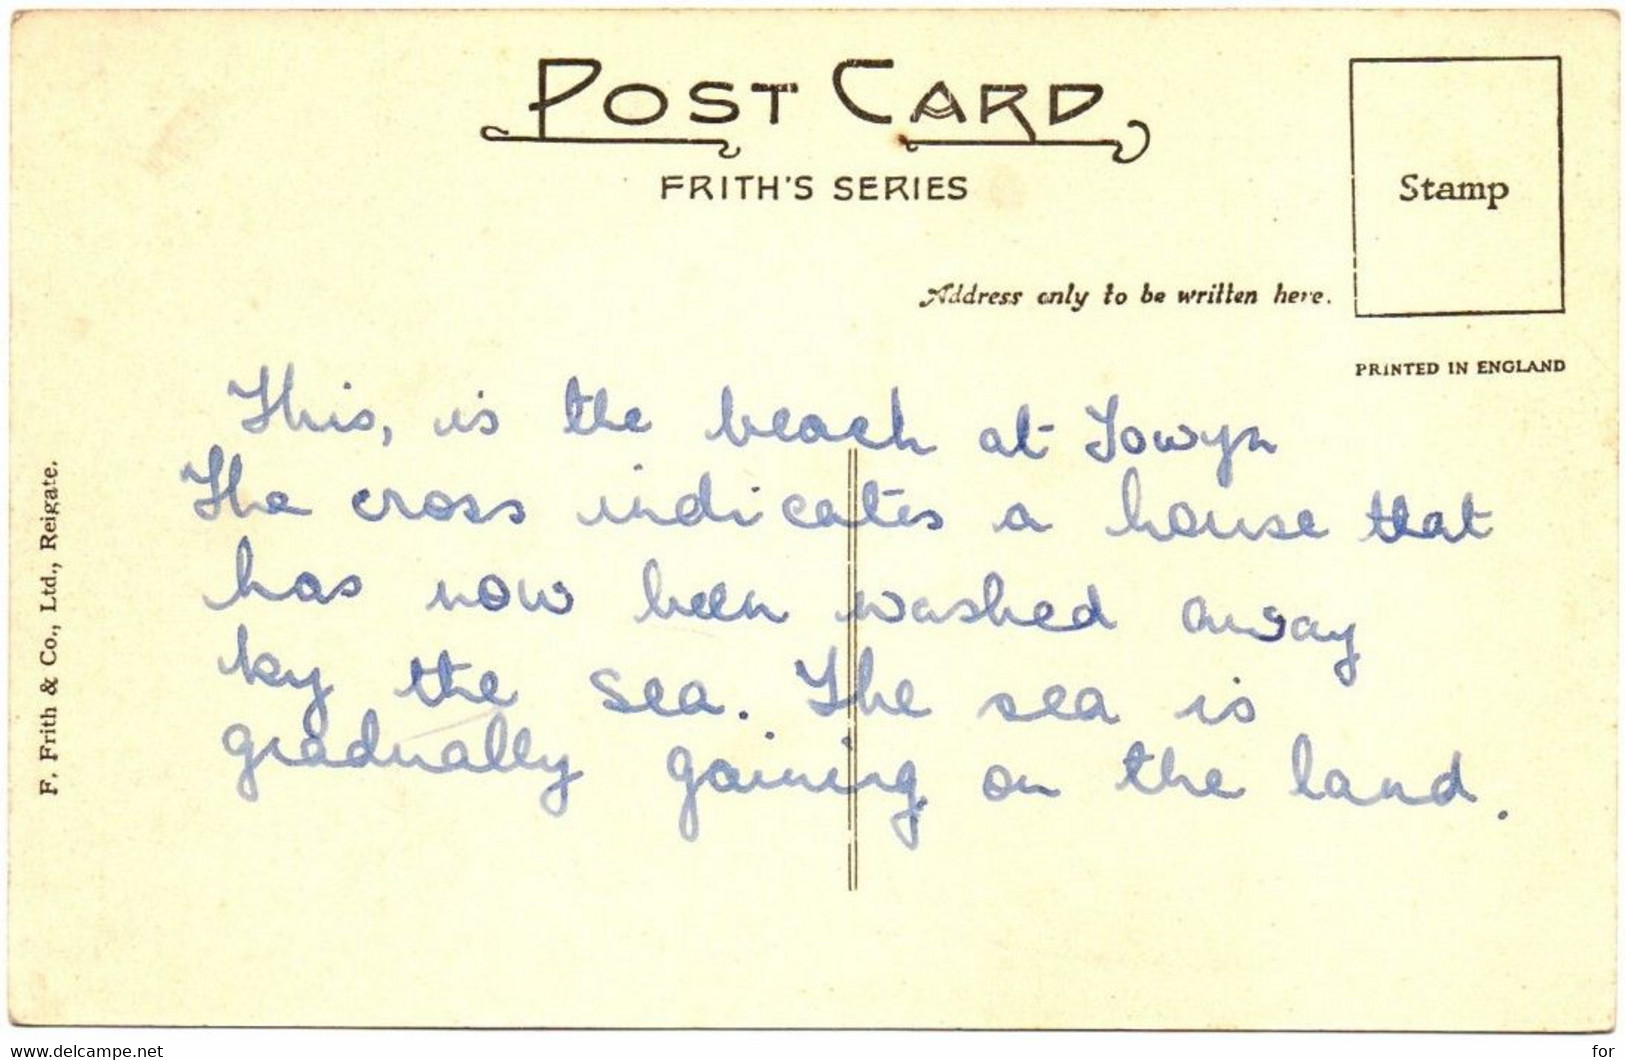 POST CARD
FRITH'S SERIES
Stamp
Address only to be written here.
PRINTED IN ENGLAND
This, is the beach at Towyn
The cross indicates a house that
has now been washed away
by the sea. The sea is
gradually gaining on the land.
F. Frith & Co., Ltd., Reigate.
www.delcampe.net
for